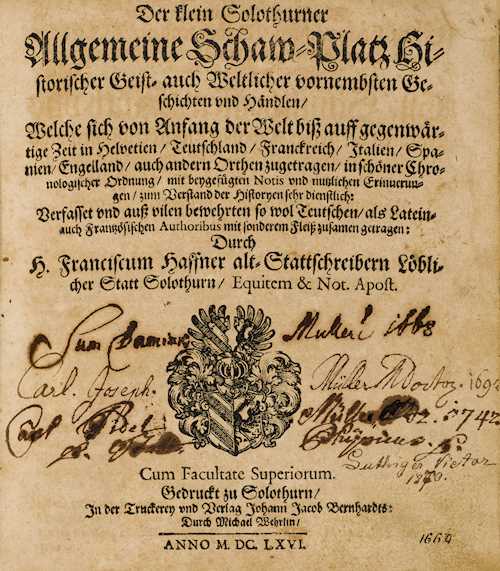 Der klein Solothurner
Allgemeine Schaw-Platz Hi-
storischer Geist- auch Weltlicher vornembsten Ge-
schichten vnd Händlen/
Welche sich von Anfang der Welt biß auff gegenwär-
tige Zeit in Helvetien/ Teutschland/ Franckreich/ Italien/ Spa-
nien/ Engelland/ auch andern Orthen zugetragen/ in schöner Chro-
nologischer Ordnung/ mit beygefügten Notis vnd nutzlichen Erinnerun-
gen/ zum Verstand der Historyen sehr dienstlich:
Verfasset vnd auß vilen bewehrten so wol Teutschen/ als Latein-
auch Frantzösischen Authoribus mit sonderem Fleiß zusamen getragen:
Durch
H. Franciscum Haffner alt-Stattschreibern Löbli-
cher Statt Solothurn/ Equitem & Not. Apost.
Sum 1668
Carl. Joseph. Müller M Doctor. 1692
Carl Fidel Müller 1742
Luthiger Victor
1870.
Cum Facultate Superiorum.
Gedruckt zu Solothurn/
In der Truckerey vnd Verlag Johann Jacob Bernhardts:
Durch Michael Wehrlin/
ANNO M. DC. LXVI.
1664